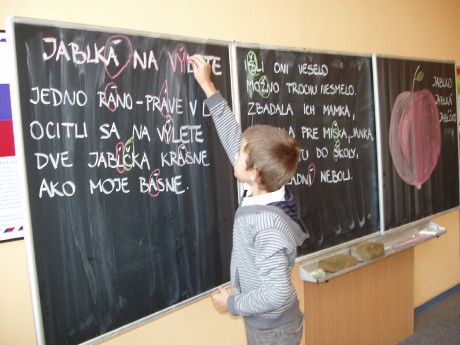 JABLKÁ NA VÝLETE
JEDNO RÁNO - PRÁVE V
OCITLI SA NA VÝLETE
DVE JABĹČKA KRÁSNE
AKO MOJE BÁSNE.
IŠLI ONI VESELO
MOŽNO TROCHU NESMELO.
ZBADALA ICH MAMKA,
PRE MIŠKA, JANKA,
DO ŠKOLY,
NEBOLÍ.
JABLKO